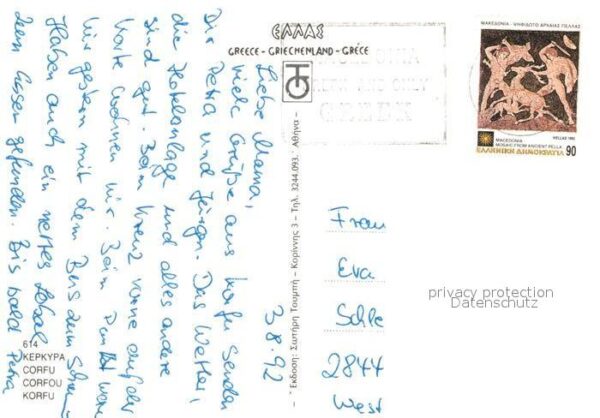 ΕΛΛΑΣ
GREECE - GRIECHENLAND - GRÈCE
MACEDONIA
GREEK
ONLY
ΜΑΚΕΔΟΝΙΑ - ΨΗΦΙΔΩΤΟ ΑΡΧΑΙΑΣ ΠΕΛΛΑΣ
HELLAS 1992
MACEDONIA
MOSAIC FROM ANCIENT PELLA
ΕΛΛΗΝΙΚΗ ΔΗΜΟΚΡΑΤΙΑ 90
3.8.92
Liebe Mama,
viele Grüße aus Korfu senden
Dir Petra und Jürgen. Das Wetter,
die Hotelanlage und alles andere
sind gut. Beim Kreuz vorne auf der
Karte wohnen wir. Beim
wir gestern mit dem Bus zum
Haben auch ein nettes Lokal
zum Essen gefunden. Bis bald Petra
Έκδοση: Σωτήρη Τουμπή - Κορίννης 3 - Τηλ. 3244.093. Αθήνα
Frau
Eva
Schle
2844
West
privacy protection
Datenschutz
614
ΚΕΡΚΥΡΑ
CORFU
CORFOU
KORFU